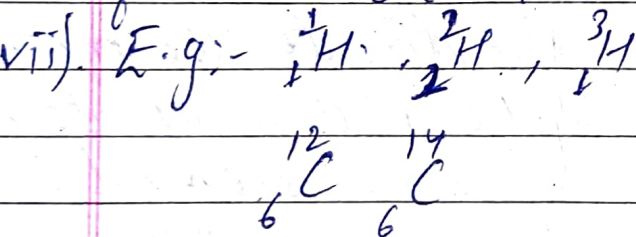 vii). E.g:- ¹₁H, ²₂H, ³₁H
¹²₆C ¹⁴₆C